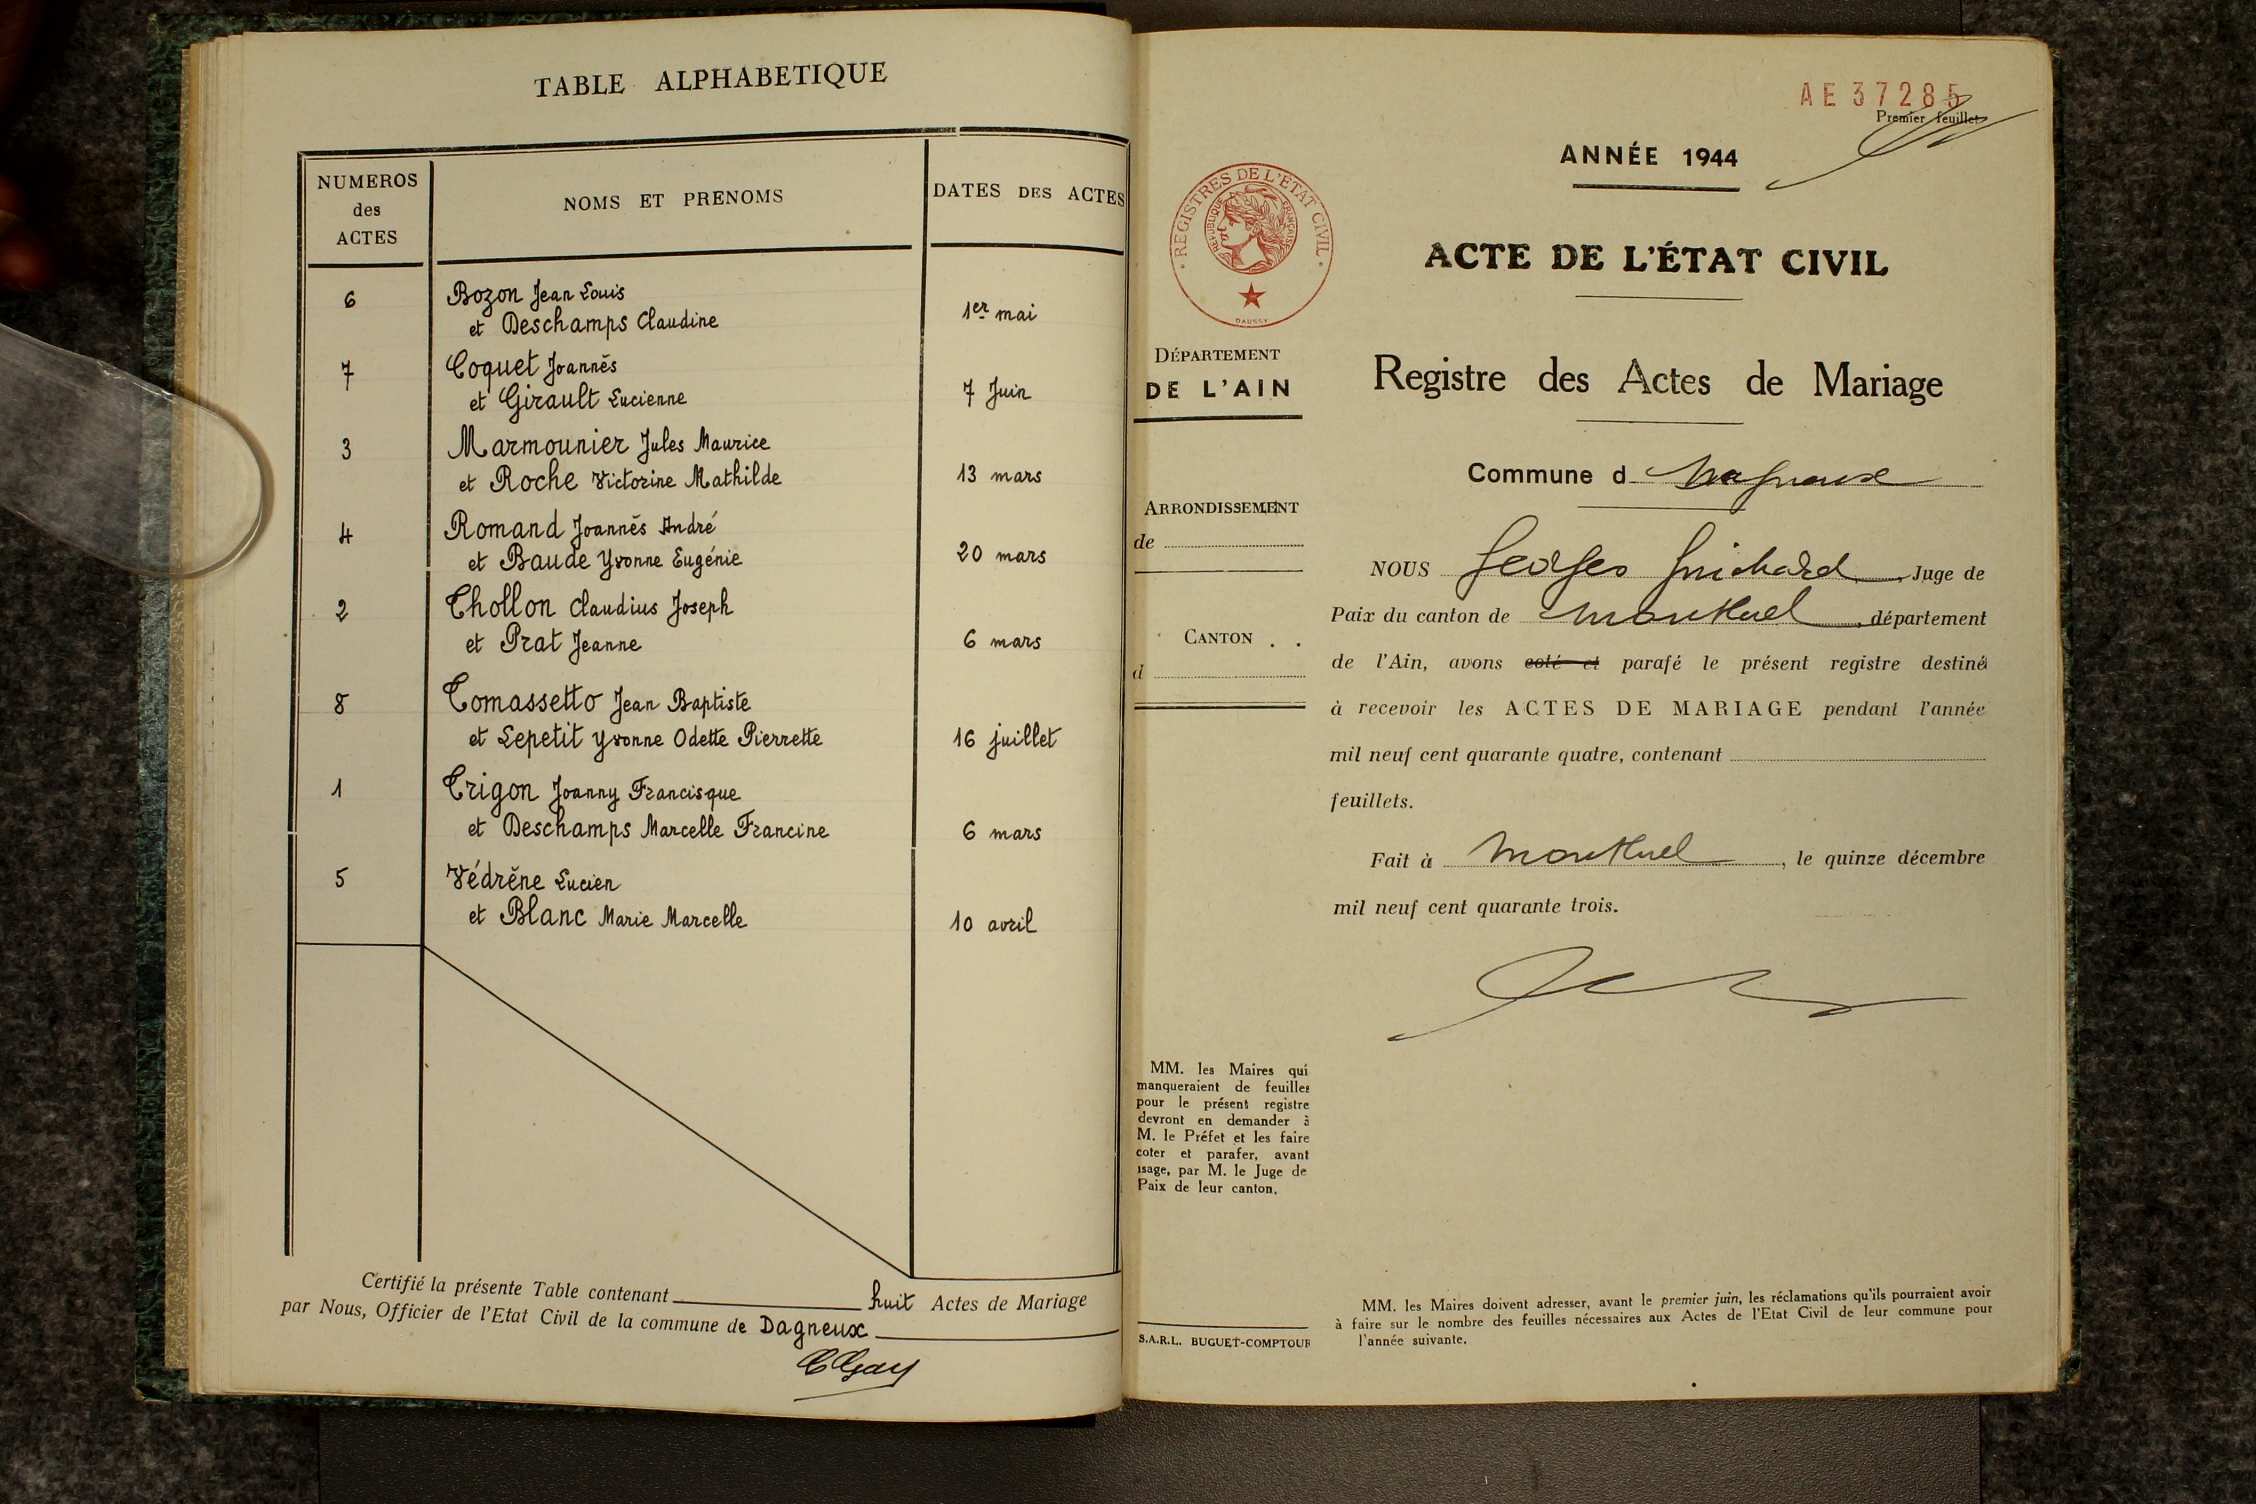 TABLE ALPHABETIQUE
NUMEROS
des
ACTES
NOMS ET PRENOMS
DATES DES ACTES
6
Bozon Jean Louis
et Deschamps Claudine
1er mai
7
Coquet Joannès
et Girault Lucienne
7 Juin
3
Marmounier Jules Maurice
et Roche Victorine Mathilde
13 mars
4
Romand Joannès André
et Baude Yvonne Eugénie
20 mars
2
Thollon Claudius Joseph
et Prat Jeanne
6 mars
8
Tomassetto Jean Baptiste
et Lepetit Yvonne Odette Pierrette
16 juillet
1
Trigon Joanny Francisque
et Deschamps Marcelle Francine
6 mars
5
Védrène Lucien
et Blanc Marie Marcelle
10 avril
Certifié la présente Table contenant huit Actes de Mariage
par Nous, Officier de l'Etat Civil de la commune de Dagneux
CGay
AE 37285
Premier feuillet
ANNÉE 1944
REGISTRES DE L'ÉTAT CIVIL
RÉPUBLIQUE FRANÇAISE
DAUSSY
ACTE DE L'ÉTAT CIVIL
DÉPARTEMENT
DE L'AIN
Registre des Actes de Mariage
Commune d Dagneux
ARRONDISSEMENT
de
CANTON . .
d
NOUS Georges Guichard, Juge de
Paix du canton de Montluel, département
de l'Ain, avons coté et parafé le présent registre destiné
à recevoir les ACTES DE MARIAGE pendant l'année
mil neuf cent quarante quatre, contenant
feuillets.
Fait à Montluel, le quinze décembre
mil neuf cent quarante trois.
MM. les Maires qui
manqueraient de feuilles
pour le présent registre
devront en demander à
M. le Préfet et les faire
coter et parafer, avant
usage, par M. le Juge de
Paix de leur canton.
S.A.R.L. BUGUET-COMPTOUR
MM. les Maires doivent adresser, avant le premier juin, les réclamations qu'ils pourraient avoir
à faire sur le nombre des feuilles nécessaires aux Actes de l'Etat Civil de leur commune pour
l'année suivante.